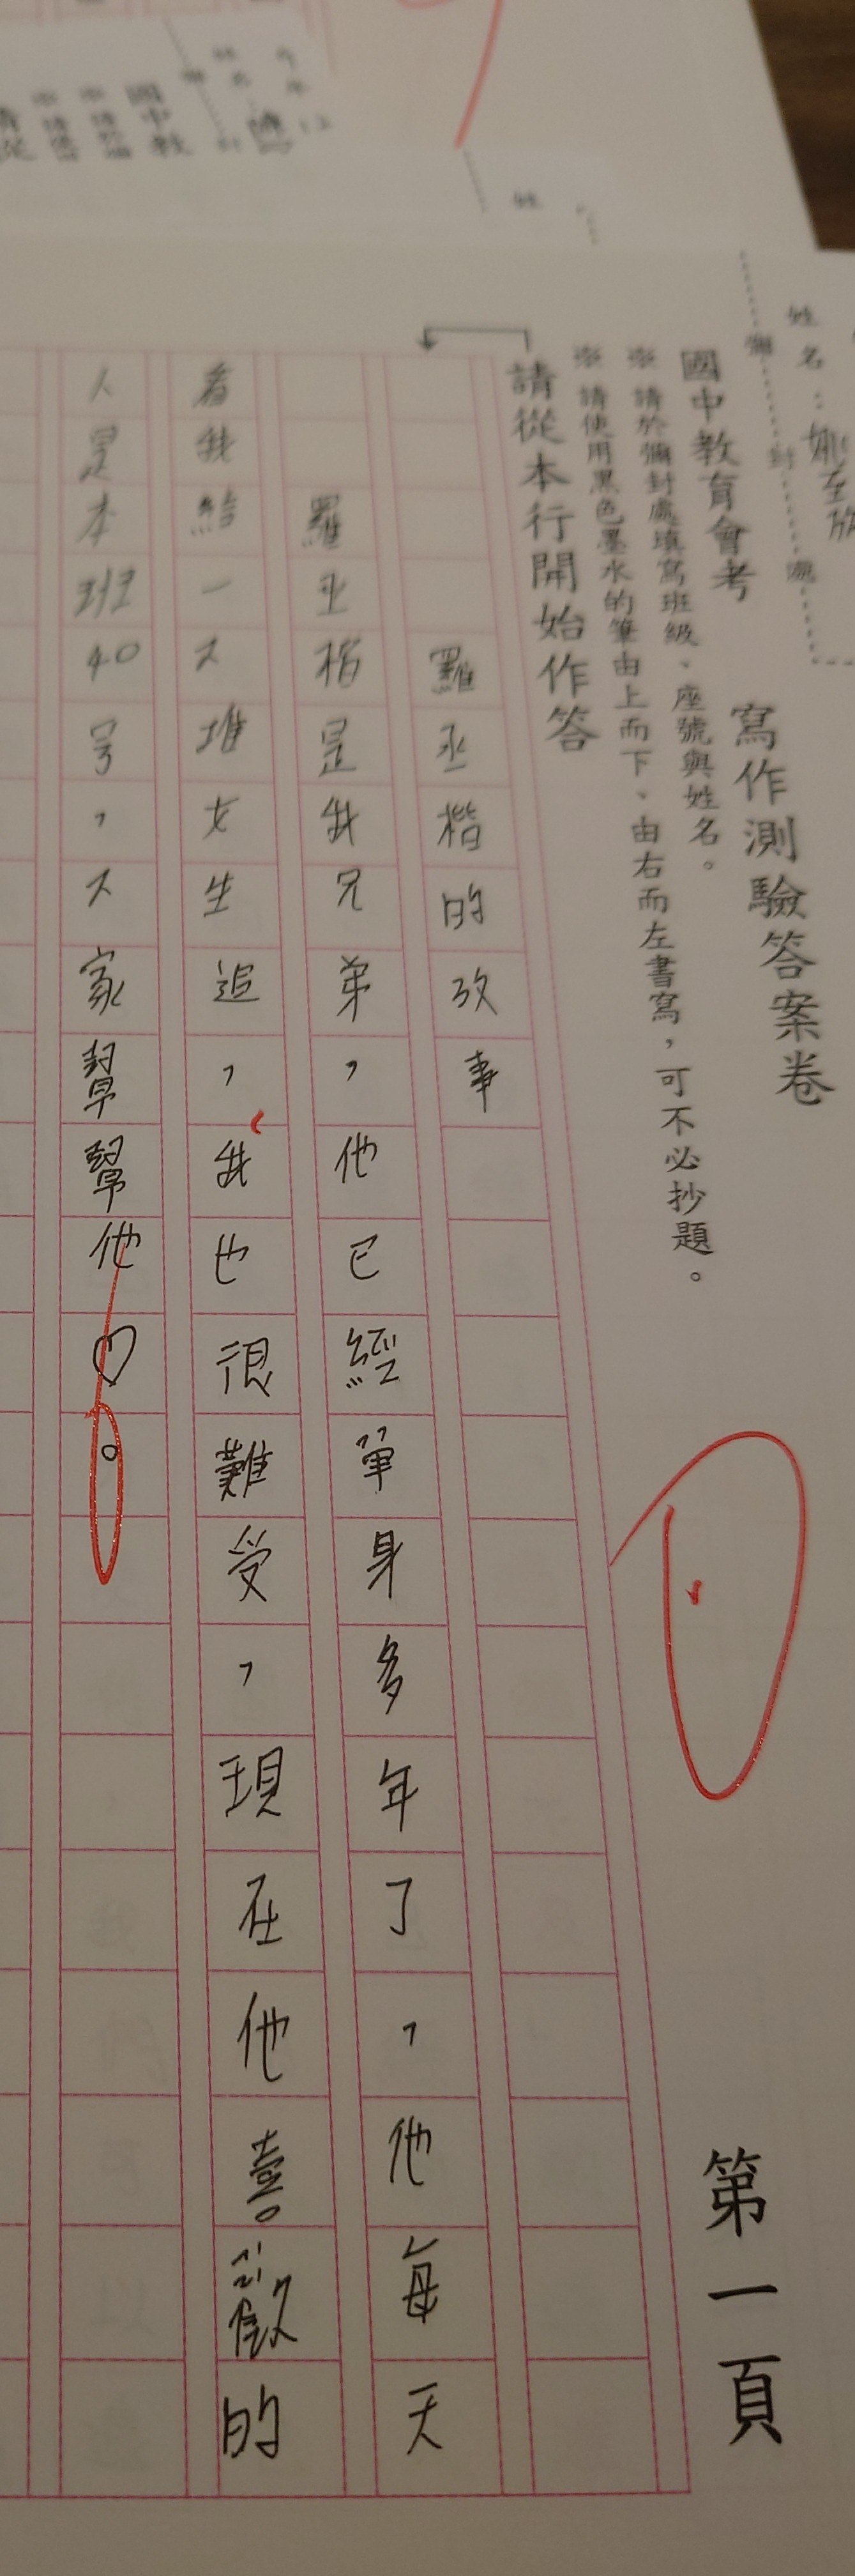 姓名：
彌封處
國中教育會考 寫作測驗答案卷
※ 請於彌封處填寫班級、座號與姓名。
※ 請使用黑色墨水的筆由上而下、由右而左書寫，可不必抄題。
請從本行開始作答
第一頁
羅丞楷的故事
羅丞楷是我兄弟，他已經單身多年了，他每天
看我給一大堆女生追，我也很難受，現在他喜歡的
人是本班40号，大家幫幫他♡。